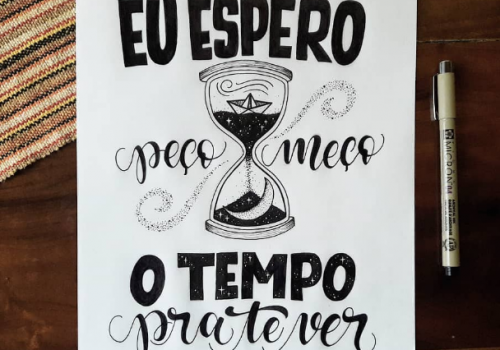 EU ESPERO
peço meço
O TEMPO
pra te ver
MICRON